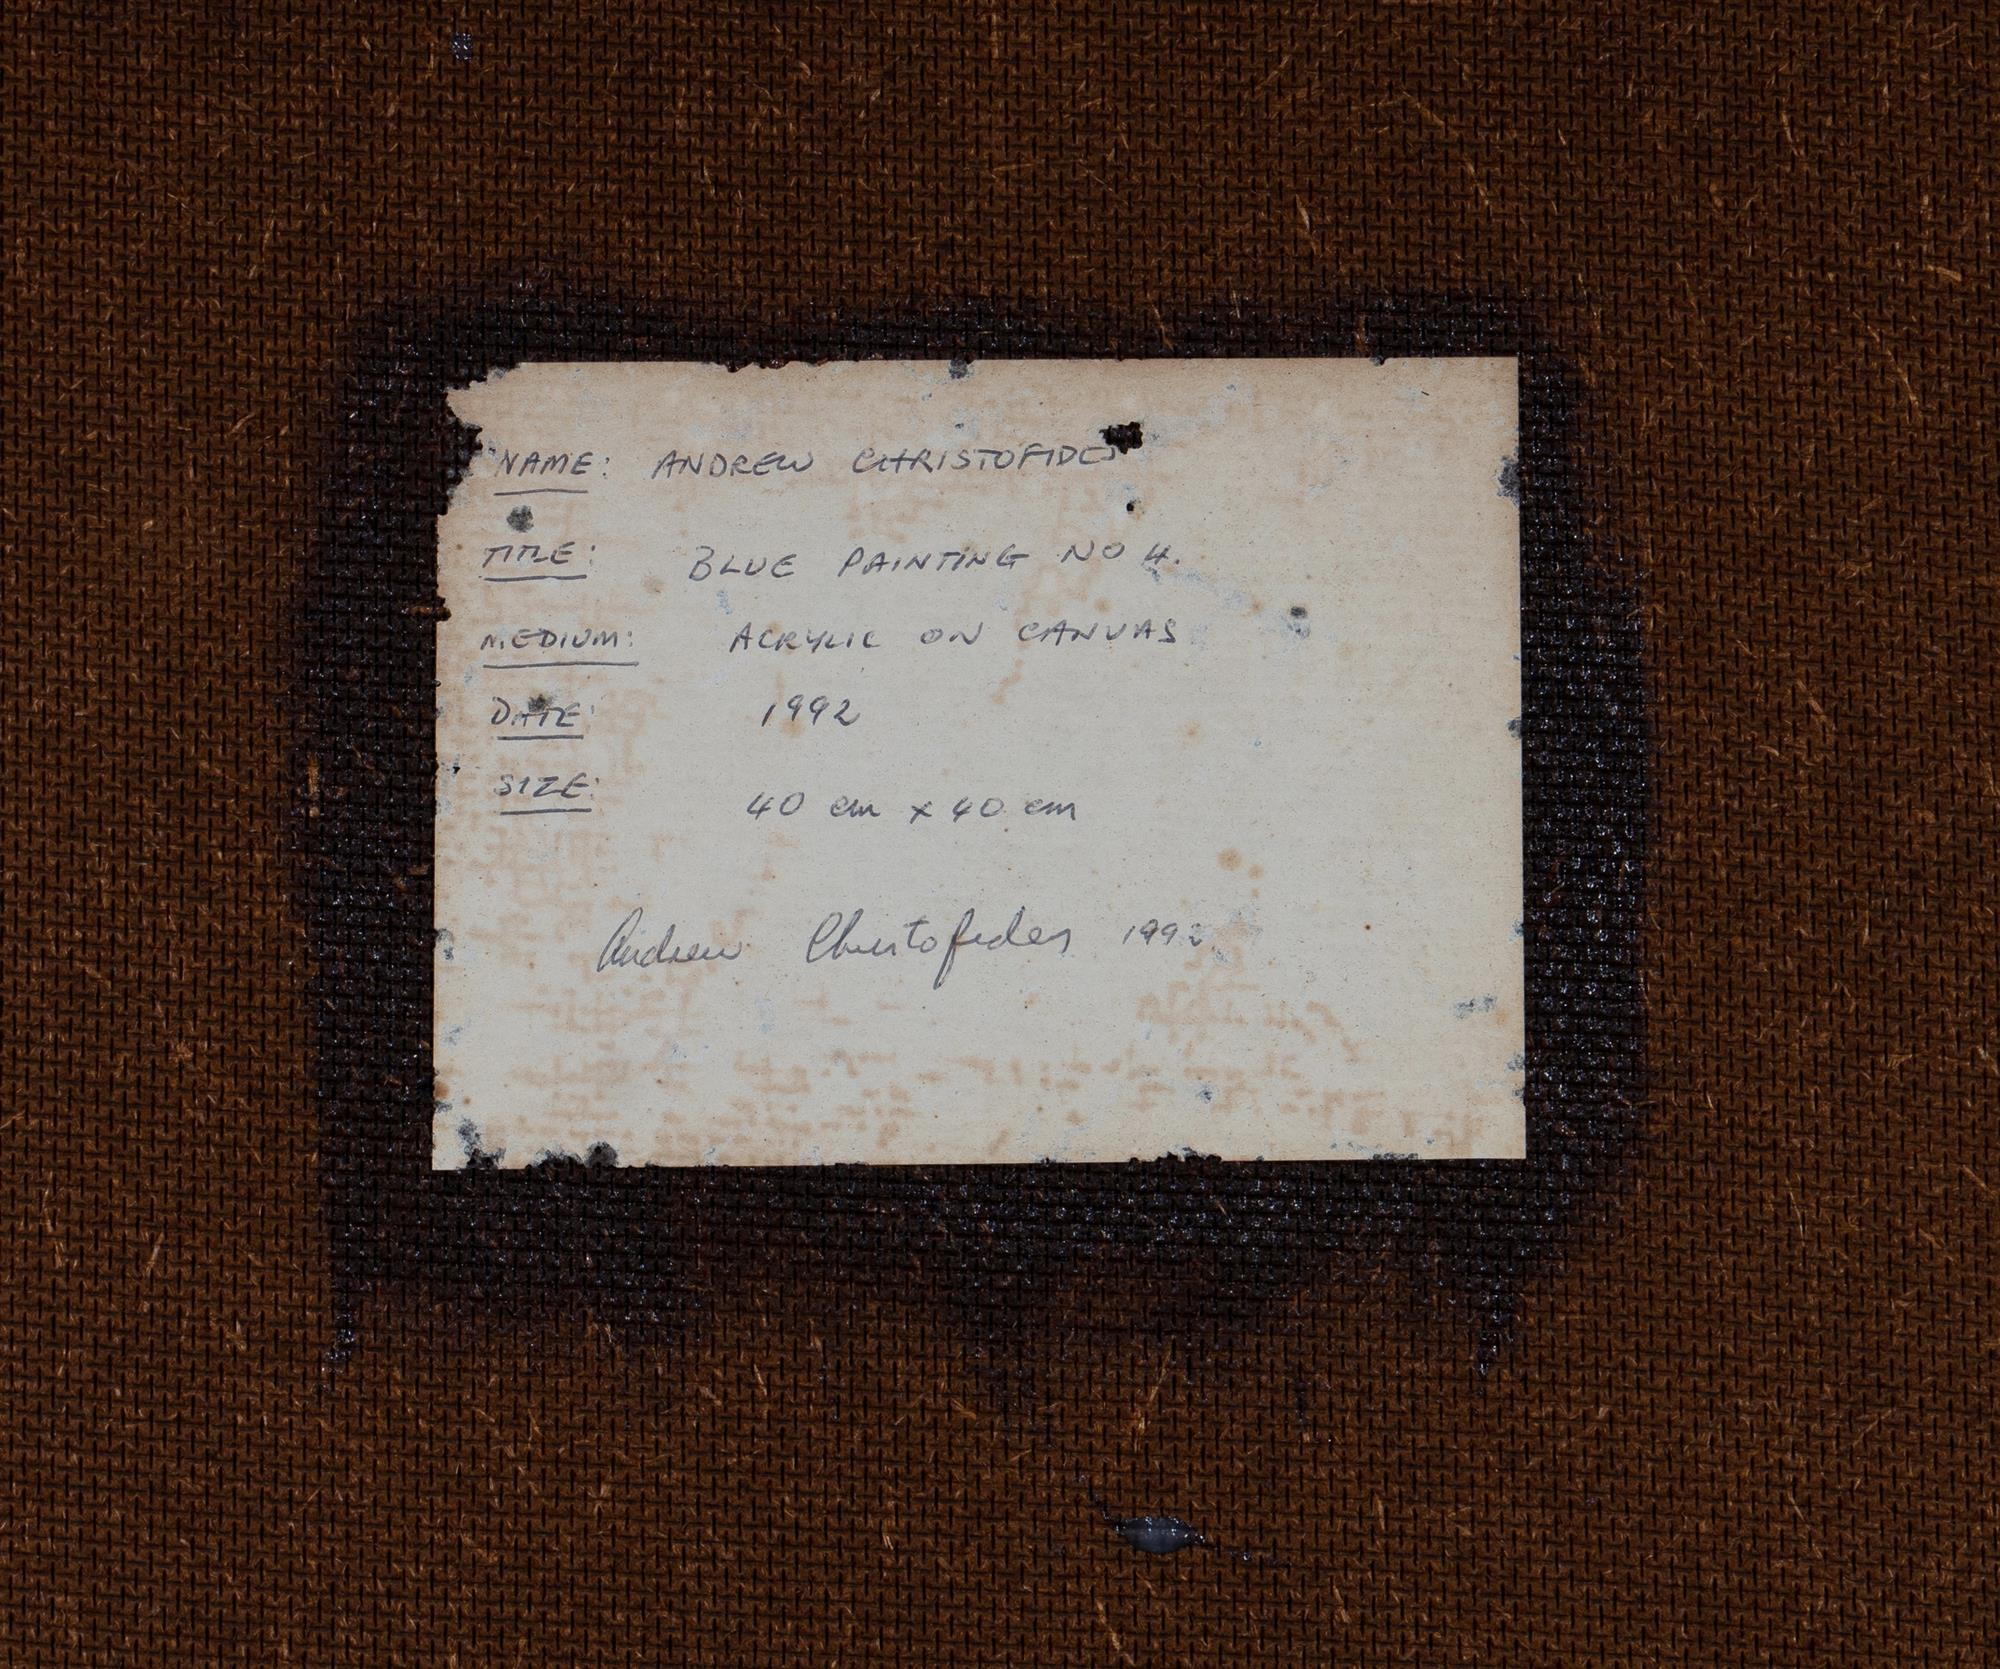 NAME: ANDREW CHRISTOFIDES
TITLE: BLUE PAINTING NO 4.
MEDIUM: ACRYLIC ON CANVAS
DATE: 1992
SIZE: 40 cm x 40 cm
Andrew Christofides 1992